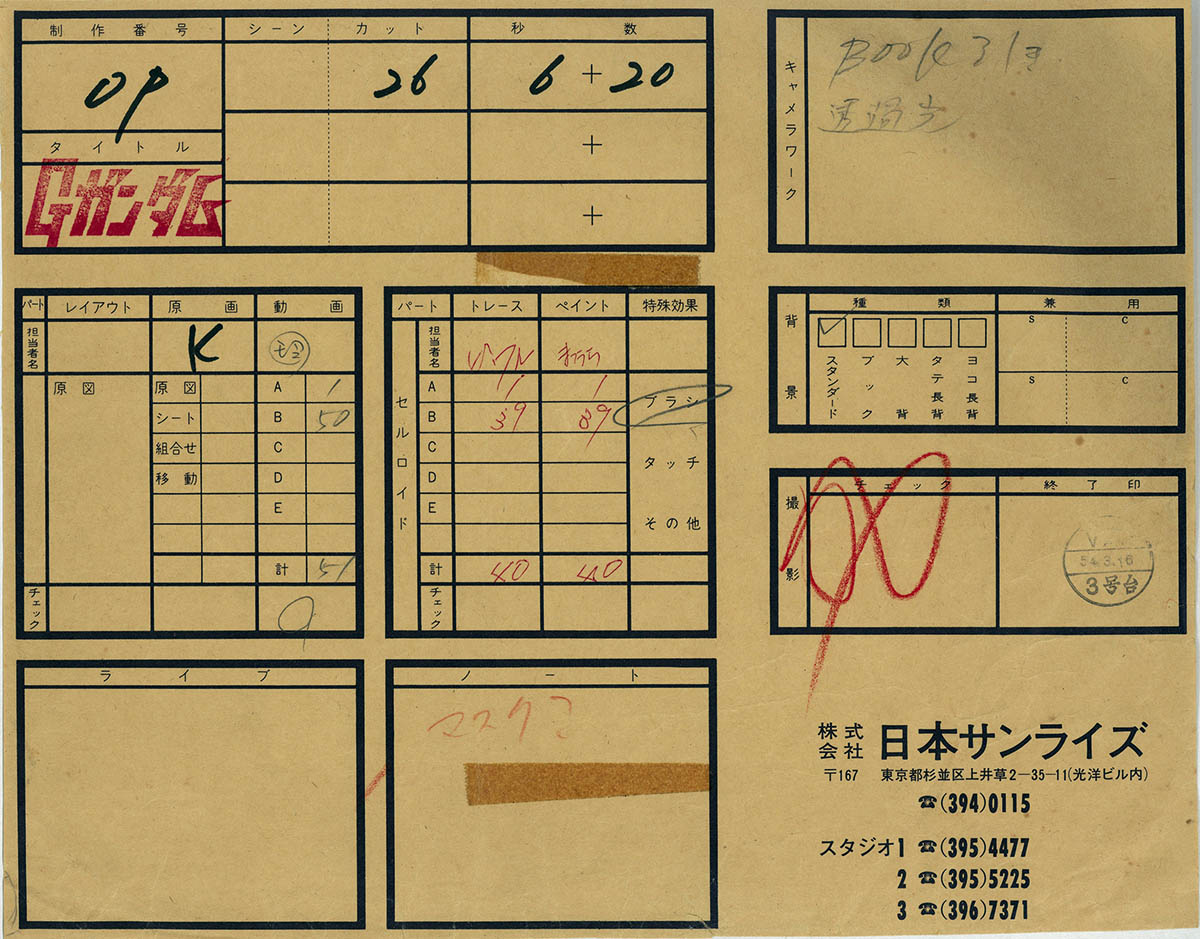 制作番号
シーン カット
秒数
OP
26
6 + 20
+
+
タイトル
Gガンダム
キャメラワーク
Book 3
透過光
パート レイアウト 原画 動画
担当者名
K
原図
原図
シート
組合せ
移動
A 1
B 50
C
D
E
計 51
チェック
パート トレース ペイント 特殊効果
セルロイド
担当者名
A 1 1
B 39 39
C
D
E
計 40 40
チェック
ブラシ
タッチ
その他
背景
種類
兼用
スタンダード
ブック
大背
タテ長背
ヨコ長背
S C
S C
撮影
チェック
終了印
54.3.16
3号台
ライブ
ノート
マスク
株式会社 日本サンライズ
〒167 東京都杉並区上井草2-35-11(光洋ビル内)
☎(394)0115
スタジオ1 ☎(395)4477
2 ☎(395)5225
3 ☎(396)7371